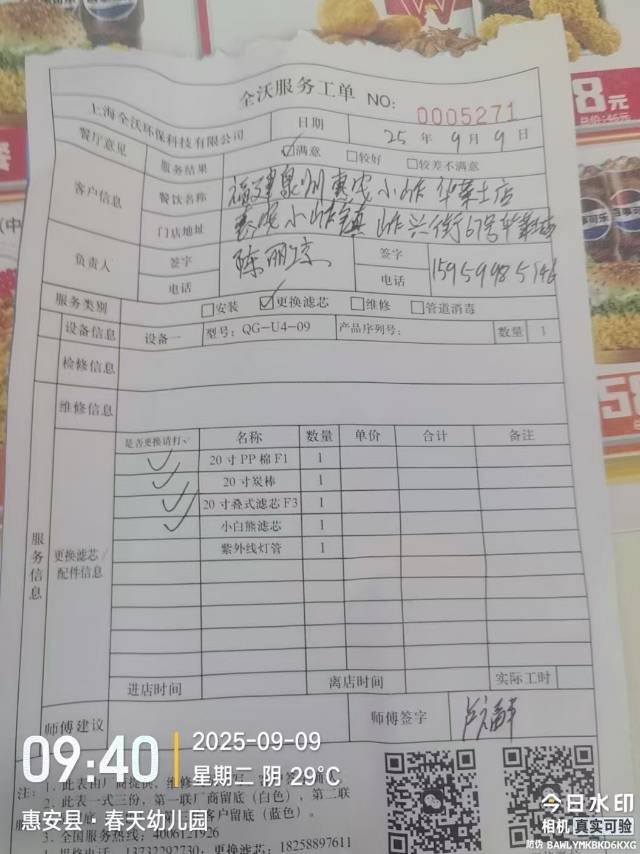 全沃服务工单 NO: 0005271
上海全沃环保科技有限公司 日期 25 年 9 月 9 日
餐厅意见 服务结果 ☑满意 □较好 □较差不满意
客户信息 餐饮名称 福建泉州惠安小岞华莱士店
门店地址 惠安小岞镇 岞兴街67号华莱士
负责人 签字 签字
电话 电话
服务类别 □安装 ☑更换滤芯 □维修 □管道消毒
设备信息 设备一 型号: QG-U4-09 产品序列号: 数量 1
检修信息
维修信息
服务信息
更换滤芯/配件信息
是否更换请打√ 名称 数量 单价 合计 备注
✓ 20寸PP棉F1 1
✓ 20寸炭棒 1
✓ 20寸叠式滤芯F3 1
✓ 小白熊滤芯 1
紫外线灯管 1
进店时间 离店时间 实际工时
师傅建议 师傅签字
注: 1. 此表由厂商提供, 维修
2. 此表一式三份, 第一联厂商留底(白色), 第二联
客户留底(蓝色)。
3. 全国服务热线:
13732292730 更换滤芯: 18258897611
8元
09:40
2025-09-09
星期二 阴 29°C
惠安县·春天幼儿园
今日水印
相机 真实可验
防伪 BAWLYMKBKD6KXG